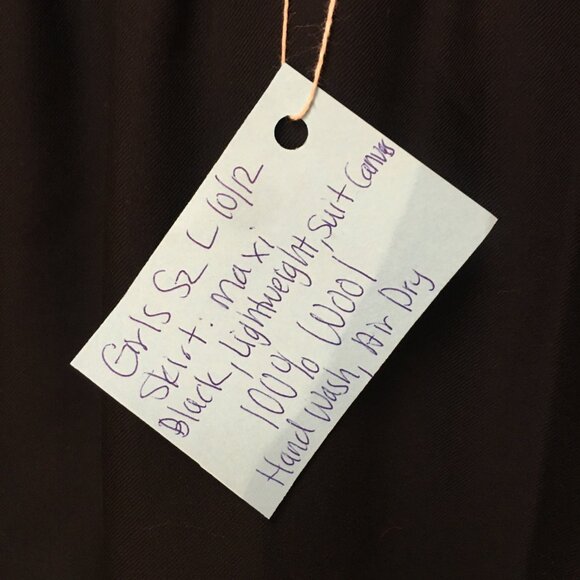 Girls Sz L 10/12
Skirt. maxi
Black, Lightweight, Suit Canvas
100% Wool
Hand Wash, Air Dry